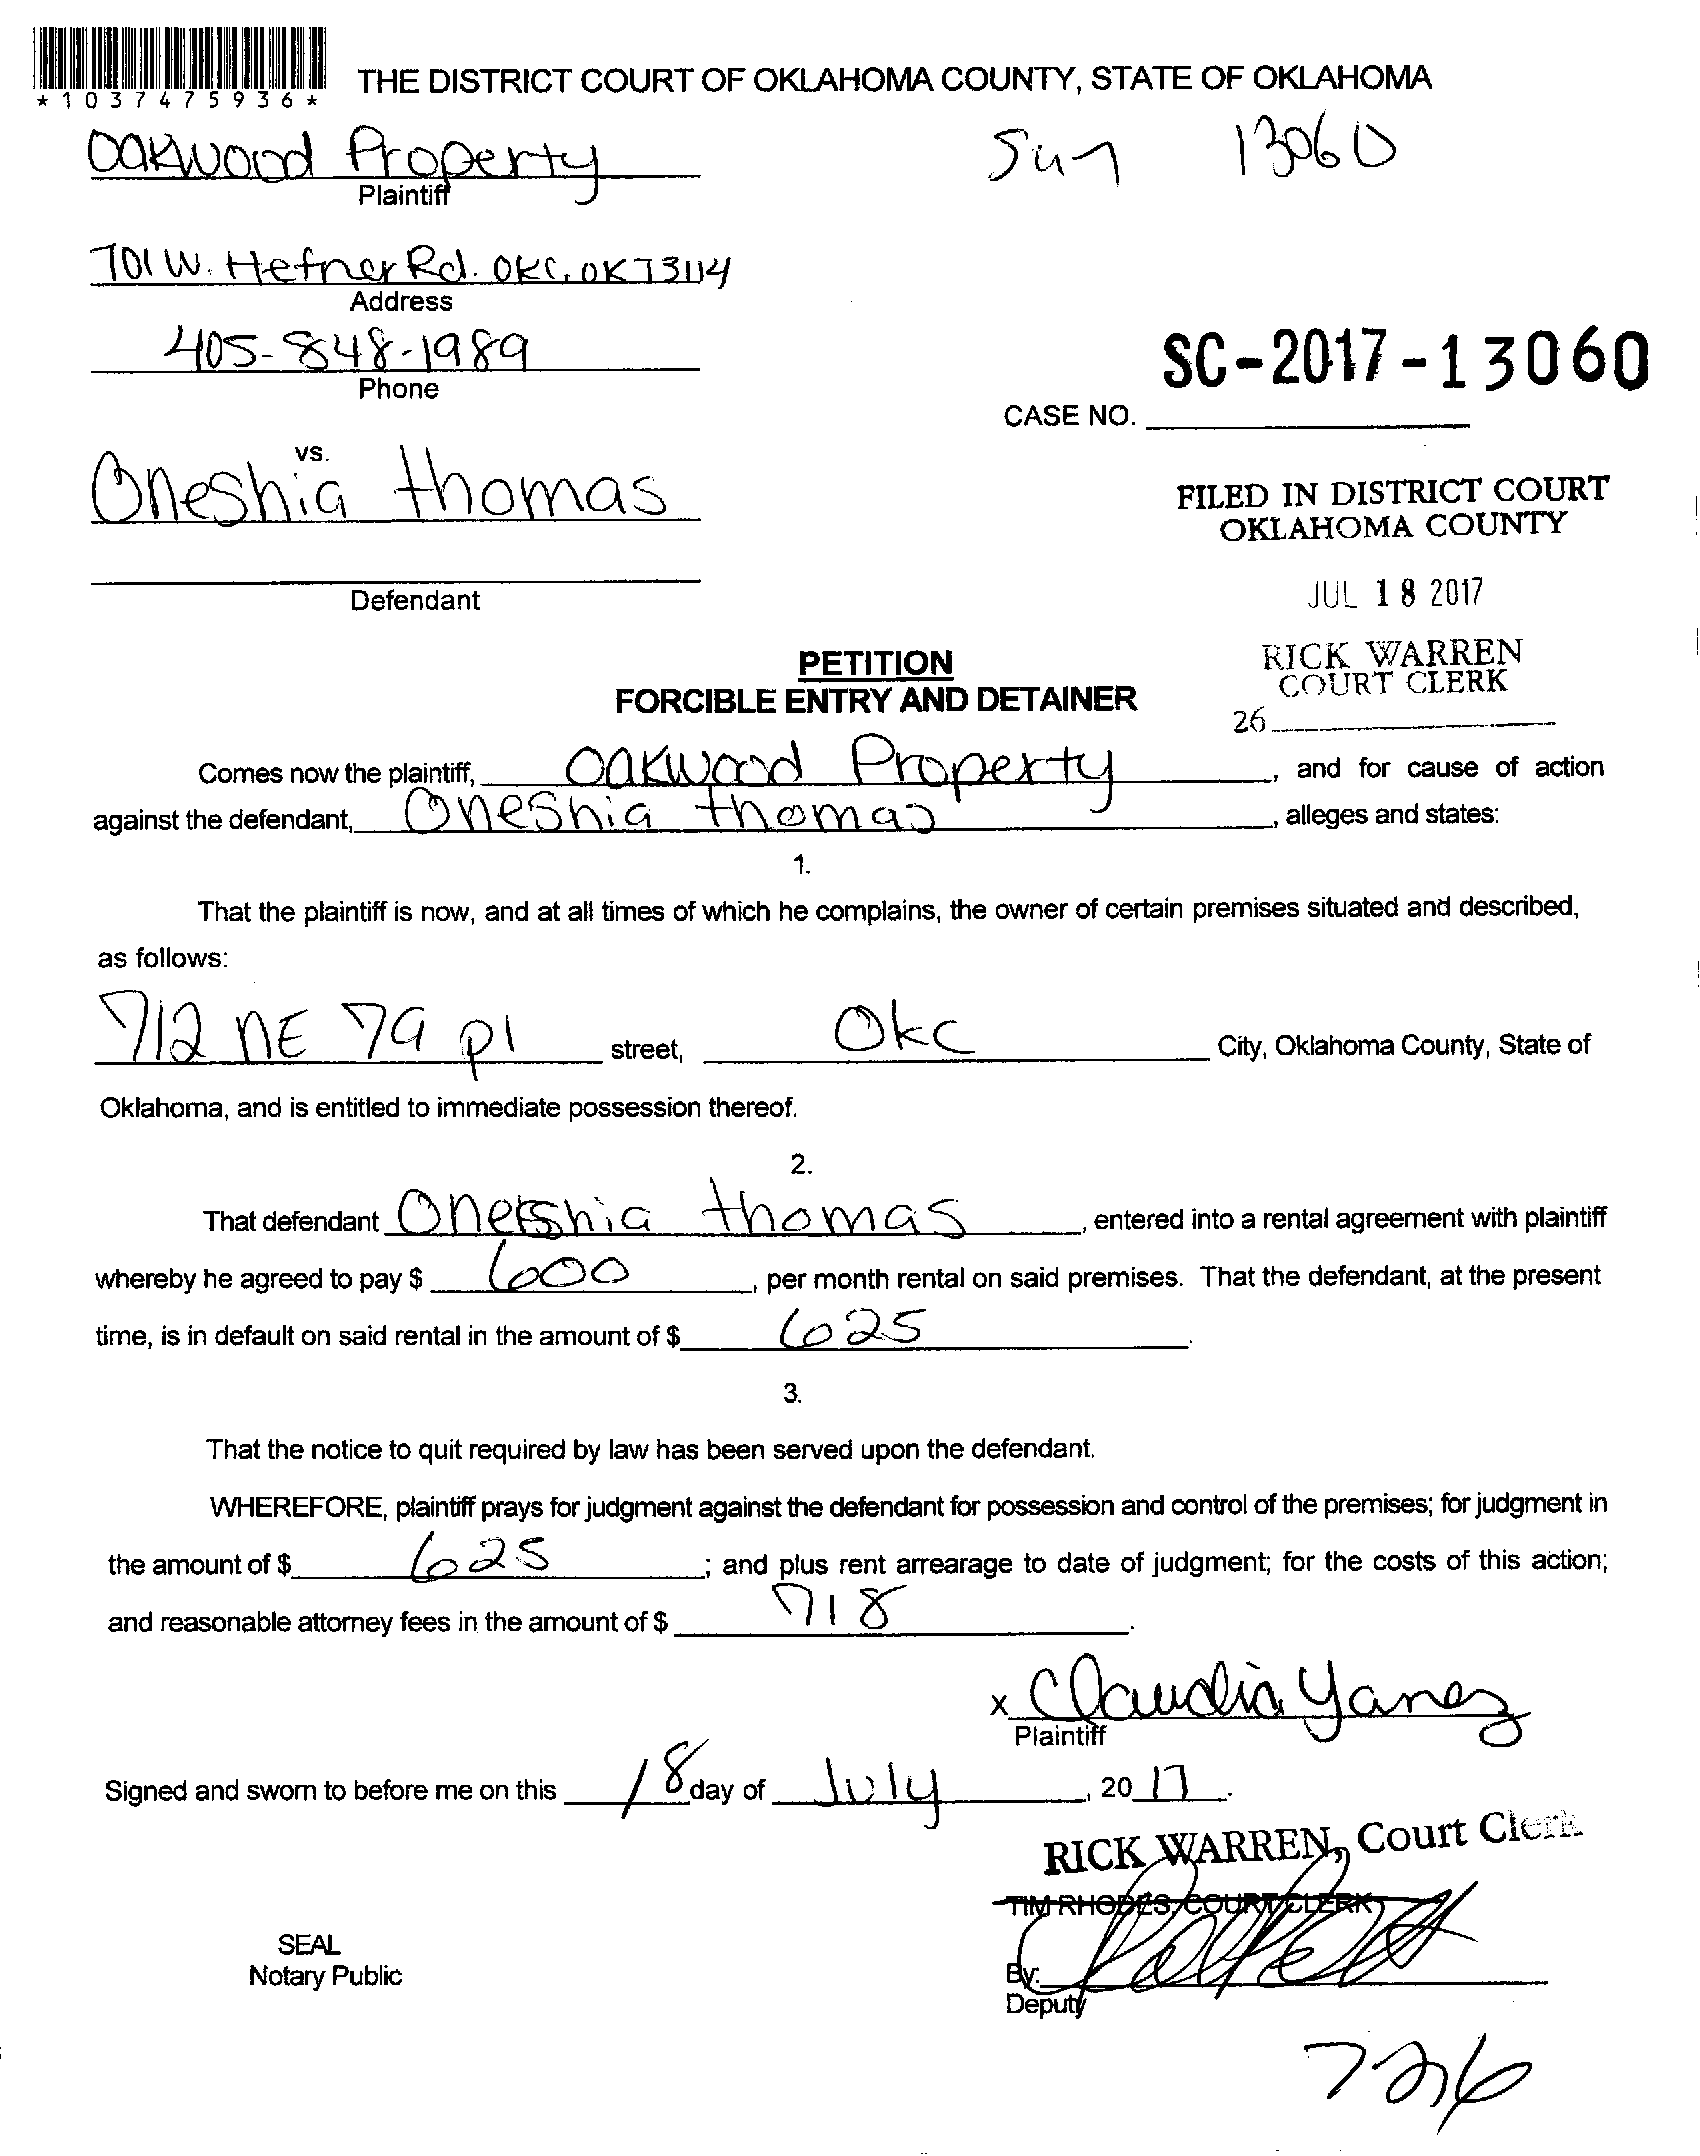 *1037475936*
THE DISTRICT COURT OF OKLAHOMA COUNTY, STATE OF OKLAHOMA
Oakwood Property
13060
Plaintiff
701 W. Hefner Rd. OKC, OK 73114
Address
405-848-1989
Phone
SC-2017-13060
CASE NO.
vs.
Oneshia thomas
FILED IN DISTRICT COURT
OKLAHOMA COUNTY
Defendant
JUL 18 2017
PETITION
RICK WARREN
COURT CLERK
FORCIBLE ENTRY AND DETAINER
26
Comes now the plaintiff, Oakwood Property, and for cause of action
against the defendant, Oneshia thomas, alleges and states:
1.
That the plaintiff is now, and at all times of which he complains, the owner of certain premises situated and described,
as follows:
712 NE 79 pl street, Okc City, Oklahoma County, State of
Oklahoma, and is entitled to immediate possession thereof.
2.
That defendant Oneshia thomas, entered into a rental agreement with plaintiff
whereby he agreed to pay $ 600, per month rental on said premises. That the defendant, at the present
time, is in default on said rental in the amount of $ 625.
3.
That the notice to quit required by law has been served upon the defendant.
WHEREFORE, plaintiff prays for judgment against the defendant for possession and control of the premises; for judgment in
the amount of $ 625; and plus rent arrearage to date of judgment; for the costs of this action;
and reasonable attorney fees in the amount of $ 718.
x Claudia Yanez
Plaintiff
Signed and sworn to before me on this 18 day of July, 2017.
RICK WARREN, Court Clerk
TIM RHODES, COURT CLERK
SEAL
Notary Public
By:
Deputy
726